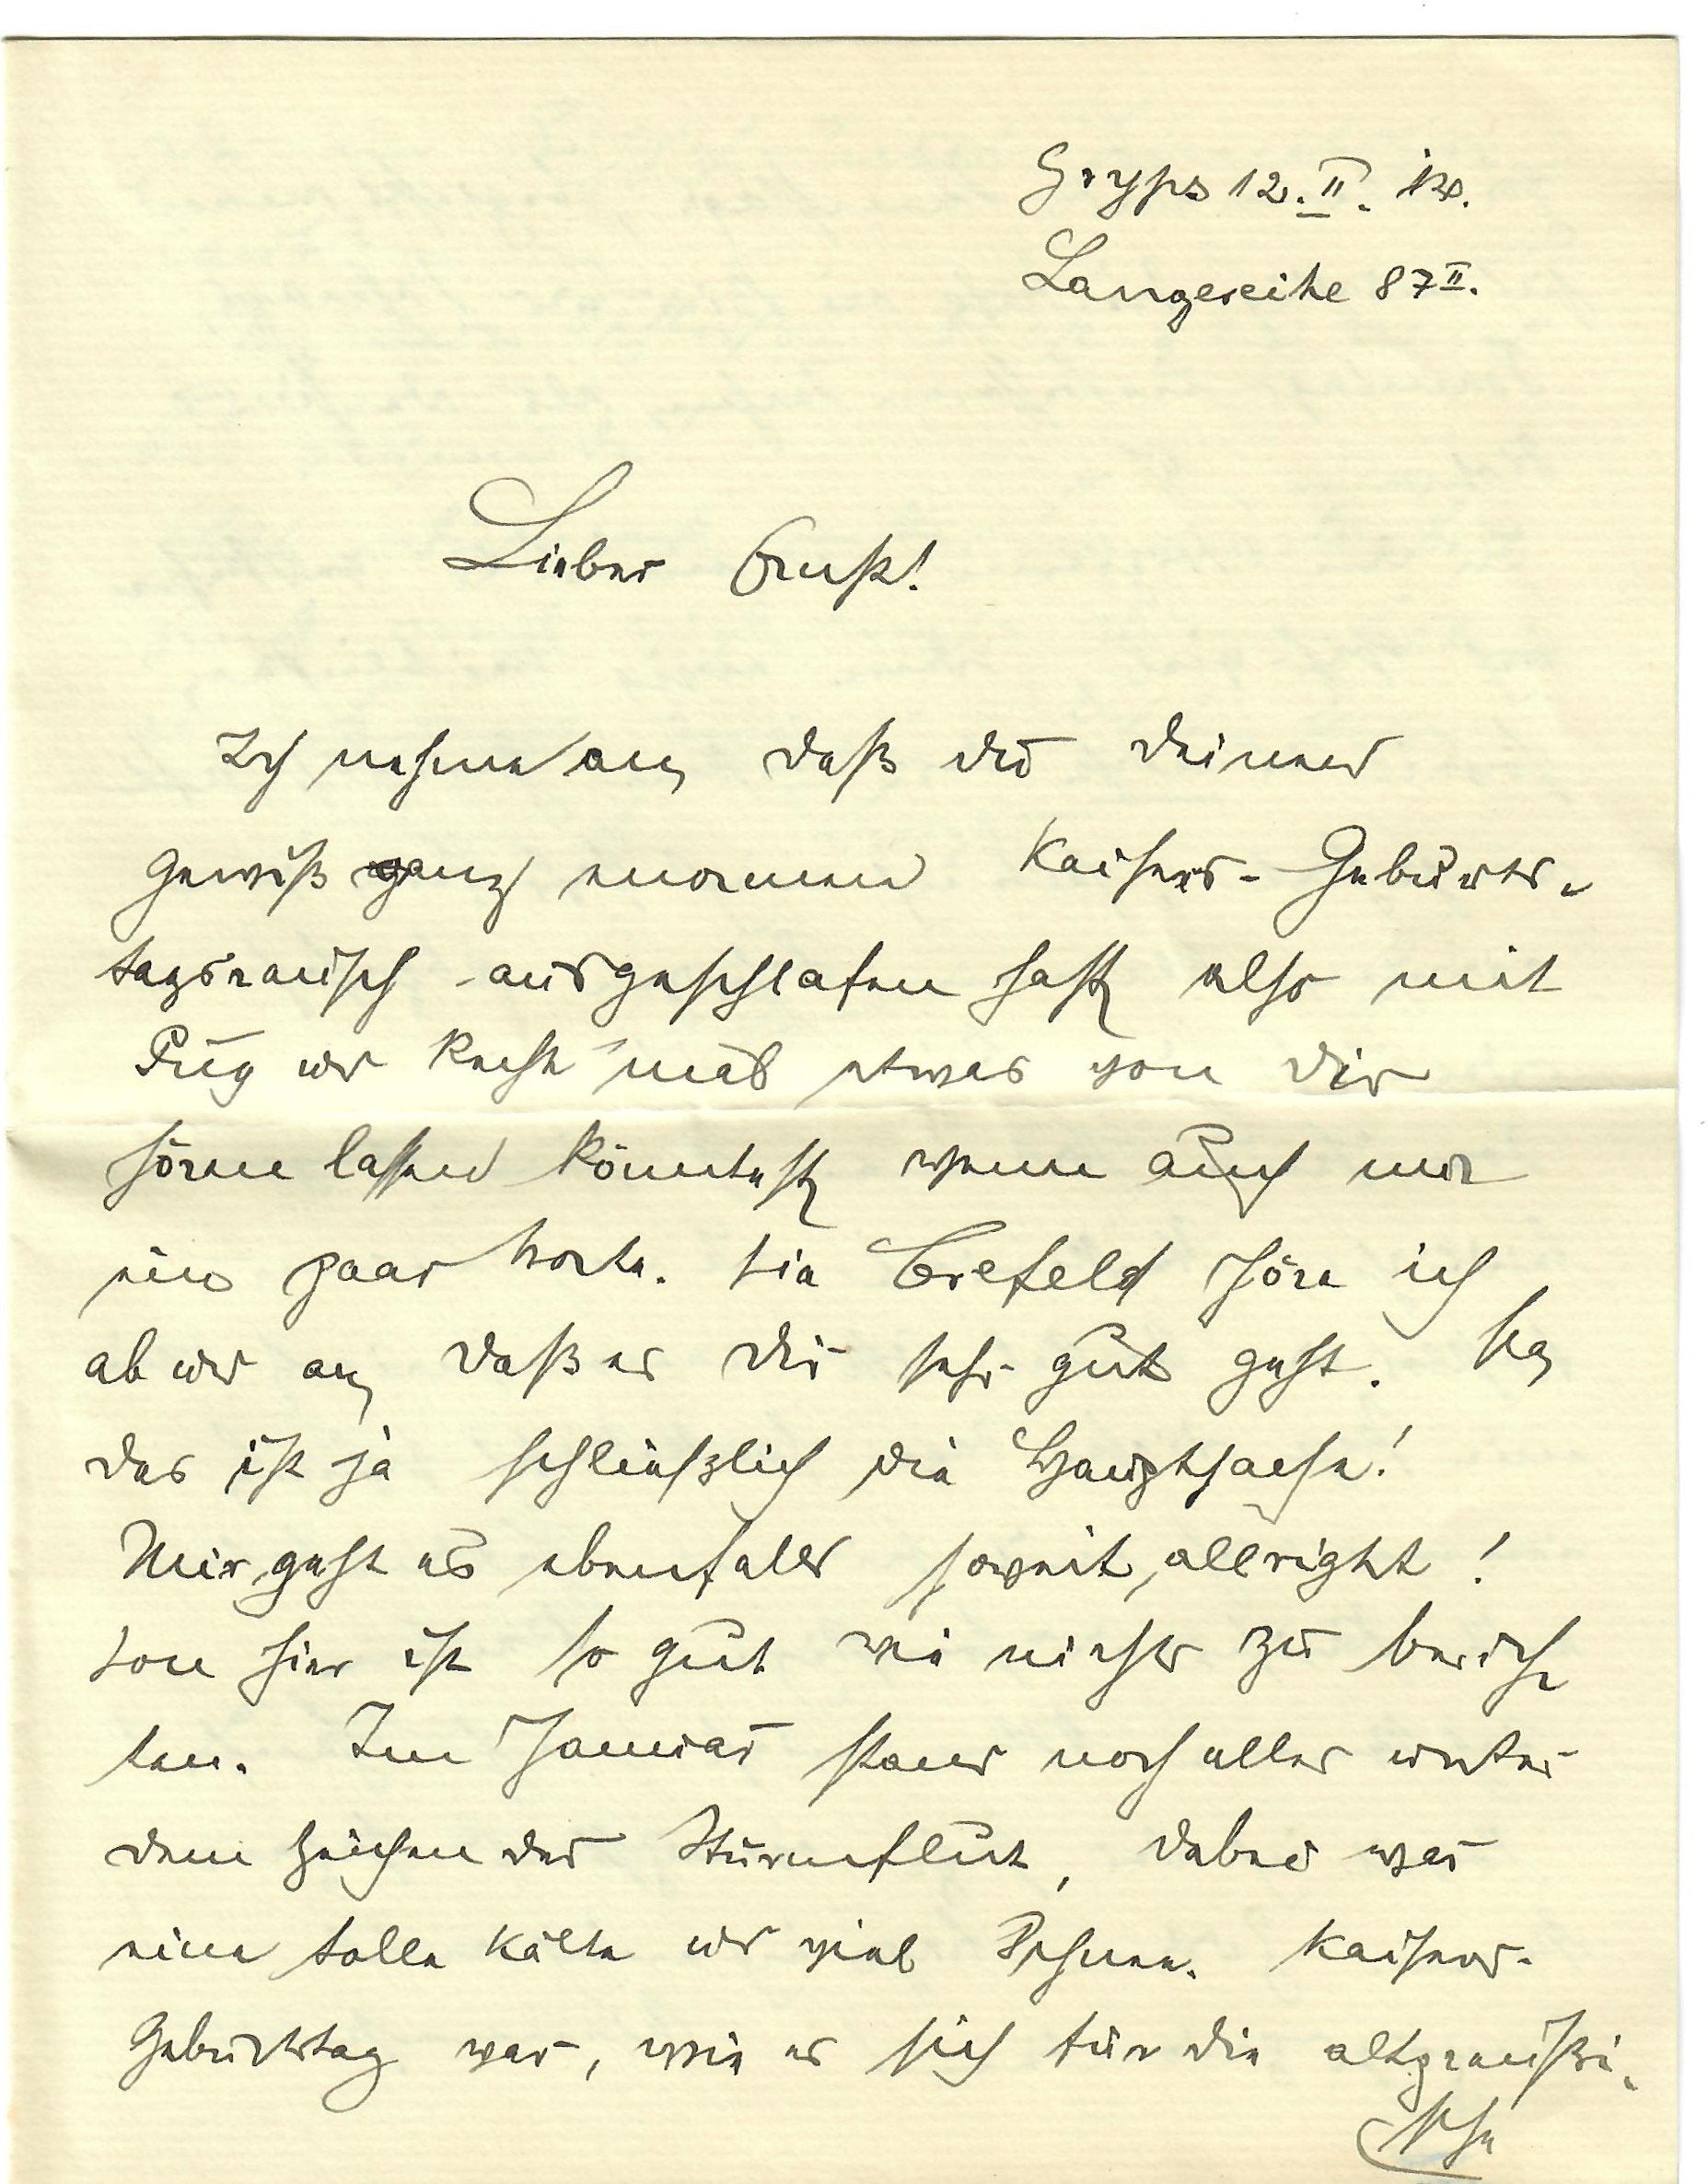 Gryps 12. II. 14.
Langereihe 87 II.
Lieber Ernst!
Ich nehme an, daß du deinen
gewiß ganz enormen Kaisers-Geburts-
tagsrausch ausgeschlafen hast, also mit
Fug und Recht mal etwas von dir
hören lassen könntest, wenn auch nur
ein paar Worte. Via Crefeld höre ich
ab und an, daß es dir sehr gut geht. Na,
das ist ja schließlich die Hauptsache!
Mir geht es ebenfalls soweit, allright!
Von hier ist so gut wie nichts zu berich-
ten. Im Januar stand noch alles unter
dem Zeichen der Sturmflut, dabei war
eine tolle Kälte und viel Schnee. Kaisers-
Geburtstag war, wie es sich für die altpreußi-
sche